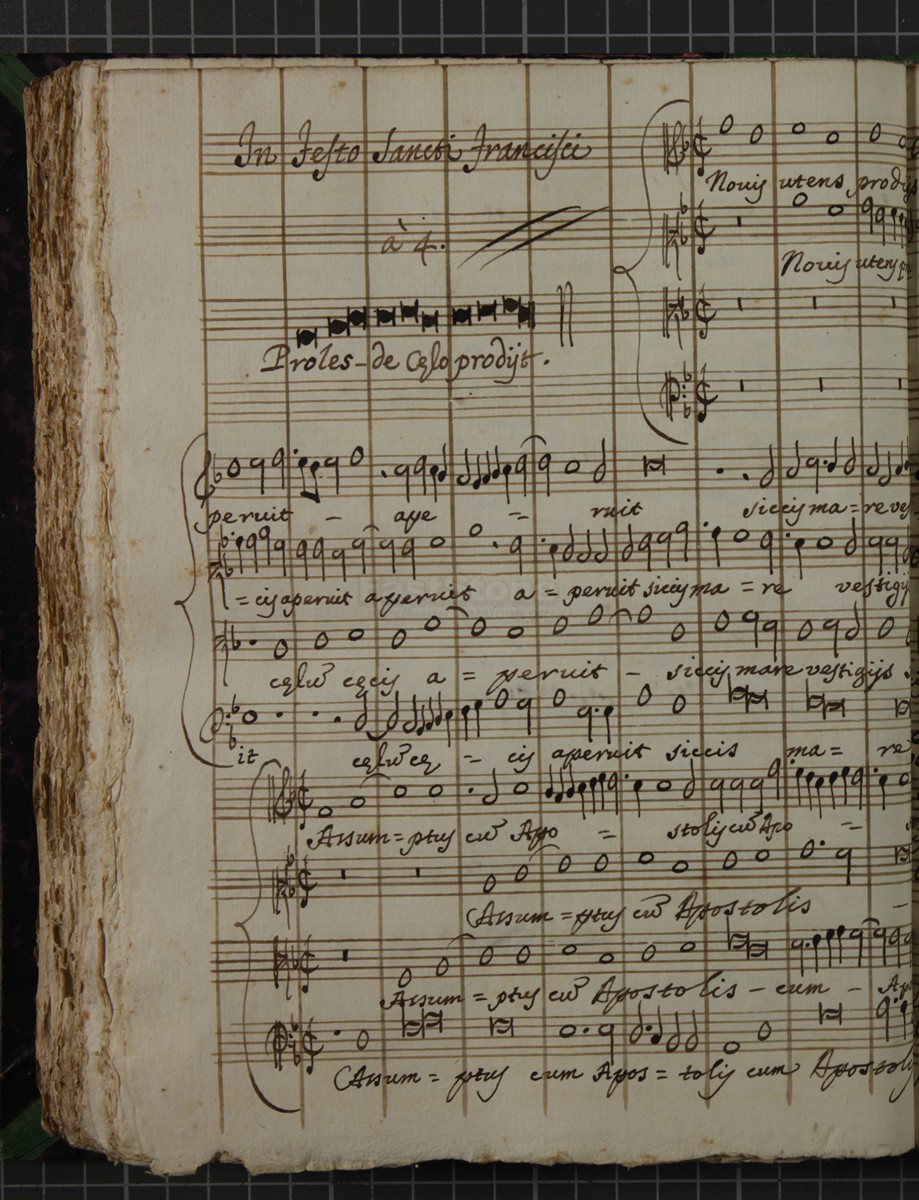 In Festo Sancti Francisci
Nouis utens prodij
à 4.
Nouis utens
Proles-de Cęlo prodijt.
peruit - ape = ruit siccis ma=re ves
=cis aperuit aperuit a=peruit siccis ma=re vestigij
cęlũ cęcis a=peruit - siccis mare vestigijs
it cęlũ cę-cis aperuit siccis ma=re
Assum=ptus cũ Apo = stolis cũ Apo =
Assum=ptus cũ Apostolis -
Assum=ptus cũ Apostolis - cum -
Assum=ptus cum Apos=tolis cum Apostolis